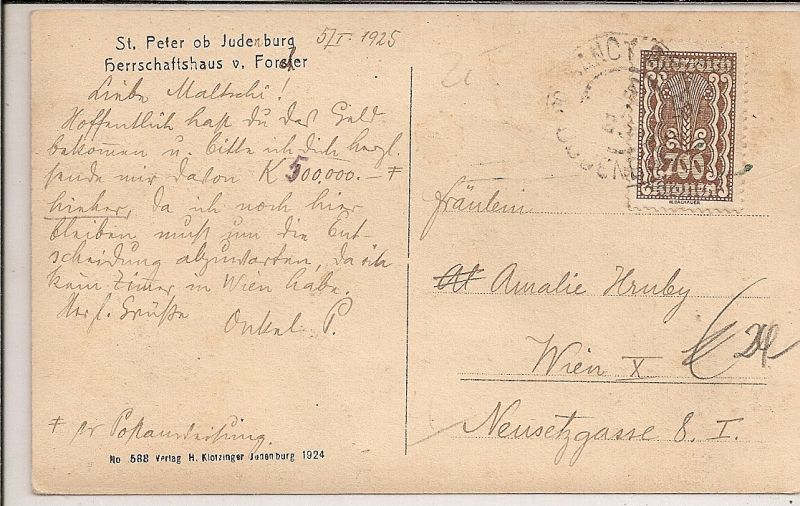 St. Peter ob Judenburg
Herrschaftshaus v. Forcher
5/I. 1925
Liebe Maltschi!
Hoffentlich hast du das Geld
bekommen u. bitte ich dich herzl.
sende mir davon K 500.000.— +
hieher, da ich noch hier
bleiben muß um die Ent-
scheidung abzuwarten, da ich
kein Zimmer in Wien habe.
Herzl. Grüße
Onkel P.
+ pr Postanweisung.
No. 588 Verlag H. Klotzinger Judenburg 1924
SANCT
Österreich
700
Kronen
Fräulein
Amalie Hruby
Wien X
Neusetzgasse 8. I.